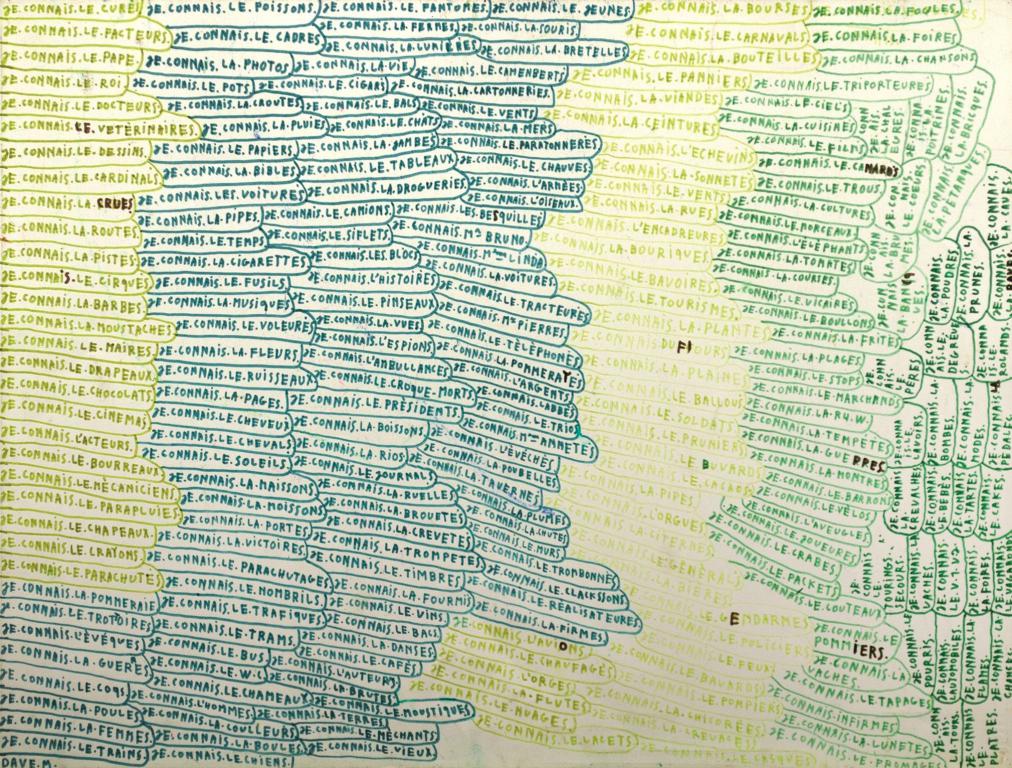 JE.CONNAIS.LE.CURÉ
JE.CONNAIS.LE.FACTEURS
JE.CONNAIS.LE.PAPE.
JE.CONNAIS.LE.ROI
JE.CONNAIS.LE.DOCTEURS
JE.CONNAIS.LE.VETÈRINAIRES.
JE.CONNAIS.LE.DESSINS.
JE.CONNAIS.LE.CARDINALS
JE.CONNAIS.LA.CRUES
JE.CONNAIS.LA.ROUTES.
JE.CONNAIS.LA.PISTES
JE.CONNAIS.LE.CIRQUES
JE.CONNAIS.LA.BARBES
JE.CONNAIS.LA.MOUSTACHES
JE.CONNAIS.LE.MAIRES.
JE.CONNAIS.LE.DRAPEAUX
JE.CONNAIS.LE.CHOCOLATS
JE.CONNAIS.LE.CINEMAS
JE.CONNAIS.L'ACTEURS.
JE.CONNAIS.LE.BOURREAUX
JE.CONNAIS.LE.MÈCANICIENS
JE.CONNAIS.LE.PARAPLUIES
JE.CONNAIS.LE.CHAPEAUX.
JE.CONNAIS.LE.CRAYONS.
JE.CONNAIS.LE.PARACHUTES
JE.CONNAIS.LA.POMMERAIE
JE.CONNAIS.LE.TROTOIRES
JE.CONNAIS.L'ÉVÉQUES
JE.CONNAIS.LA.GUERÈ
JE.CONNAIS.LE.COQS
JE.CONNAIS.LA.POULES
JE.CONNAIS.LA.FEMMES.
JE.CONNAIS.LE.TRAINS
DAVE.M.
JE.CONNAIS.LE.POISSONS
JE.CONNAIS.LE.CADRES
JE.CONNAIS.LA.PHOTOS
JE.CONNAIS.LE.POTS
JE.CONNAIS.LA.CROUTES
JE.CONNAIS.LA.PLUIES
JE.CONNAIS.LE.PAPIERS
JE.CONNAIS.LA.BIBLES
JE.CONNAIS.LES.VOITURES
JE.CONNAIS.LA.PIPES
JE.CONNAIS.LE.TEMPS
JE.CONNAIS.LA.CIGARETTES
JE.CONNAIS.LE.FUSILS
JE.CONNAIS.LA.MUSIQUES
JE.CONNAIS.LE.VOLEURS
JE.CONNAIS.LA.FLEURS
JE.CONNAIS.LE.RUISSEAUX
JE.CONNAIS.LA.PAGES.
JE.CONNAIS.LE.CHEVEUX
JE.CONNAIS.LE.CHEVALS
JE.CONNAIS.LE.SOLEILS
JE.CONNAIS.LA.MAISONS
JE.CONNAIS.LA.MOISSONS
JE.CONNAIS.LA.PORTES
JE.CONNAIS.LA.VICTOIRES
JE.CONNAIS.LE.PARACHUTAGES
JE.CONNAIS.LE.NOMBRILS.
JE.CONNAIS.LE.TRAFIQUES
JE.CONNAIS.LE.TRAMS.
JE.CONNAIS.LE.BUS
JE.CONNAIS.LE.W.C
JE.CONNAIS.LE.CHAMEAUX
JE.CONNAIS.L'HOMMES
JE.CONNAIS.LA.COULEURS
JE.CONNAIS.LA.BOULES
JE.CONNAIS.LE.CHIENS.
JE.CONNAIS.LE.FANTOMES
JE.CONNAIS.LE.JEUNES.
JE.CONNAIS.LA.FERMES
JE.CONNAIS.LA.SOURIS
JE.CONNAIS.LA.LUMIÈRES
JE.CONNAIS.LA.BRETELLES
JE.CONNAIS.LA.VIE
JE.CONNAIS.LE.CAMENBERTS
JE.CONNAIS.LE.CIGARS
JE.CONNAIS.LA.CARTONNERIES.
JE.CONNAIS.LE.BALS
JE.CONNAIS.LE.VENTS
JE.CONNAIS.LE.CHATS
JE.CONNAIS.LA.MERS
JE.CONNAIS.LA.JAMBES
JE.CONNAIS.LE.PARATONNÈRES
JE.CONNAIS.LE.TABLEAUX
JE.CONNAIS.LE.CHAUVES
JE.CONNAIS.LA.DROGUERIES
JE.CONNAIS.L'ARMÉES
JE.CONNAIS.L'OISEAUX
JE.CONNAIS.LE.CAMIONS
JE.CONNAIS.LES.BESQUILLES
JE.CONNAIS.LE.SIFLETS
JE.CONNAIS.Mr BRUNO
JE.CONNAIS.LES.BLOCS
JE.CONNAIS.Mme LINDA
JE.CONNAIS.L'HISTOIRES
JE.CONNAIS.LA.VOITURES
JE.CONNAIS.LE.PINSEAUX
JE.CONNAIS.LE.TRACTEURS
JE.CONNAIS.LA.VUES
JE.CONNAIS.Mr PIERRES
JE.CONNAIS.L'ESPIONS
JE.CONNAIS.LE.TÈLÈPHÒNES
JE.CONNAIS.L'AMBULLANCES
JE.CONNAIS.LA.POMMERAYES
JE.CONNAIS.LE.CROQUE-MORTS
JE.CONNAIS.L'ARGENTS
JE.CONNAIS.LE.PRÈSIDENTS
JE.CONNAIS.L'ABBÈS
JE.CONNAIS.LA.BOISSONS
JE.CONNAIS.LE.TRIOS
JE.CONNAIS.LA.RIOS
JE.CONNAIS.Mme ANNETES
JE.CONNAIS.LE.JOURNALS
JE.CONNAIS.L'ÈVÊCHÈS
JE.CONNAIS.LA.RUELLES
JE.CONNAIS.LA.POUBELLES
JE.CONNAIS.LA.BROUETES
JE.CONNAIS.LA.TAVERNES
JE.CONNAIS.LA.CREVETES
JE.CONNAIS.LA.PLUMES
JE.CONNAIS.LA.TROMPETES
JE.CONNAIS.LA.CHUTES
JE.CONNAIS.LE.TIMBRES
JE.CONNAIS.LE.MURS
JE.CONNAIS.LA.FOURMIS
JE.CONNAIS.LE.TROMBONNES
JE.CONNAIS.LE.VINS
JE.CONNAIS.LE.CLACKSSONS
JE.CONNAIS.LE.BACS
JE.CONNAIS.LE.RÉALISATEURES
JE.CONNAIS.LA.DANSES
JE.CONNAIS.LA.FIRMES
JE.CONNAIS.LE.CAFÉS
JE.CONNAIS.L'AUTEURS
JE.CONNAIS.LA.BRUTES
JE.CONNAIS.LE.MOUSTIQUES
JE.CONNAIS.LA.TERRES
JE.CONNAIS.LE.MÈCHANTS
JE.CONNAIS.LE.VIEUX
JE.CONNAIS.LA.BOURSES
JE.CONNAIS.LE.CARNAVALS
JE.CONNAIS.LA.BOUTEILLES
JE.CONNAIS.LE.PANNIERS
JE.CONNAIS.LA.VIANDES
JE.CONNAIS.LA.CEINTURES
JE.CONNAIS.L'ECHEVINS
JE.CONNAIS.LA.SONNETES
JE.CONNAIS.LE.VENTS
JE.CONNAIS.LA.RUES
JE.CONNAIS.L'ENCADREURES
JE.CONNAIS.LA.BOURIQUES
JE.CONNAIS.LE.BAVOIRES
JE.CONNAIS.LE.TOURISMES
JE.CONNAIS.LA.PLANTES
JE.CONNAIS.DU FLOURS
JE.CONNAIS.LA.PLAINES
JE.CONNAIS.LE.BALLOUS
JE.CONNAIS.LE.SOLDATS
JE.CONNAIS.LE.PRUNIERS
JE.CONNAIS.LE.BUVARDS
JE.CONNAIS.LE.CACAOS
JE.CONNAIS.LA.PIPES
JE.CONNAIS.L'ORGUES
JE.CONNAIS.LA.CITERNES
JE.CONNAIS.LE.GÉNÉRALS
JE.CONNAIS.LA.BIÈRES
JE.CONNAIS.LE.GENDARMES
JE.CONNAIS.L'AVIONS
JE.CONNAIS.LE.POLICIERS
JE.CONNAIS.LE.CHAUFFAGÉS
JE.CONNAIS.LE.FEUX
JE.CONNAIS.L'ORGES
JE.CONNAIS.LE.BAVARDS
JE.CONNAIS.LA.FLUTES
JE.CONNAIS.LE.POMPIERS
JE.CONNAIS.LE.NUAGES
JE.CONNAIS.LA.CHICORÉES
JE.CONNAIS.LE.LACETS
JE.CONNAIS.LA.CREVACES
JE.CONNAIS.LE.CASQUES
JE.CONNAIS.LA.FOULES
JE.CONNAIS.LA.FOIRES
JE.CONNAIS.LA.CHANSONS
JE.CONNAIS.LE.TRIPORTEURES
JE.CONNAIS.LE.CIELS
JE.CONNAIS.LA.CUISINES
JE.CONNAIS.LE.FILMS
JE.CONNAIS.LE.CANARDS
JE.CONNAIS.LE.TROUS
JE.CONNAIS.LA.CULTURES
JE.CONNAIS.LE.MORCEAUX
JE.CONNAIS.L'ÉLÉPHANTS
JE.CONNAIS.LA.TOMATES
JE.CONNAIS.LA.COURSES
JE.CONNAIS.LE.VICAIRES
JE.CONNAIS.LE.BOULLONS
JE.CONNAIS.LA.FRITES
JE.CONNAIS.LA.PLAGES
JE.CONNAIS.LE.STOPS
JE.CONNAIS.LE.MARCHANDS
JE.CONNAIS.LA.R.W.
JE.CONNAIS.LA.TEMPÈTE
JE.CONNAIS.LA.GUERRES
JE.CONNAIS.LA.MONTRES
JE.CONNAIS.LE.BARRONS
JE.CONNAIS.LE.VÉLOS
JE.CONNAIS.L'AVEUGLES
JE.CONNAIS.LE.JOUEURES
JE.CONNAIS.LE.CRABES
JE.CONNAIS.LE.PACKETS
JE.CONNAIS.LE.COUTEAUX
JE.CONNAIS.LE
POMMIERS.
JE.CONNAIS.LA
VACHES
JE.CONNAIS.LE.TAPAGES
JE.CONNAIS.INFIRMES
JE.CONNAIS.LA.LUNETES
JE.CONNAIS.LE.FROMAGES
JE.CONNAIS.
LA.BRIQUES.
JE.CONNAIS.
LA.PÉTANQUES
JE.CONNAIS.
LA.POUDRES
JE.CONNAIS.LA.
PRUNES.